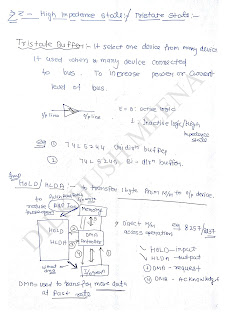 Z - High Impedance State / Tristate State :-
Tristate Buffer :- It select one device from many device
It used when a many device connected
to bus. To increase power or current
level of bus.
i/p line
o/p line
E = 0 : Active logic
= 1 : Inactive logic / High
impedance state
eg ① 74LS244 Unidirn buffer
② 74LS245 Bi-dirn buffer.
HOLD / HLDA - transfer 1 byte from M/m to o/p device.
HOLD
HLDA
Memory
DMA
Controller
→ Direct M/m
access operation
eg 8257/8237
HOLD - input
HLDA - output
① DMA - request
② DMA - Acknowledge
DMA used to transfer more data
at fast rate